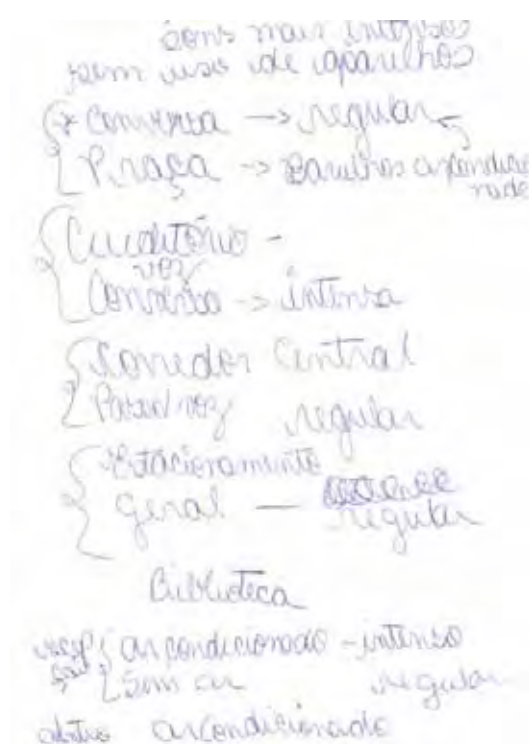 sons mais intensos
sem uso de aparelhos
* Conversa -> regular
Praça -> Barulhos ar condicio
nado
Auditório -
voz
Conversa -> intensa
Corredor Central
voz regular
Estacionamento
geral - regular
Biblioteca
ar condicionado - intenso
Som ar regular
ar condicionado